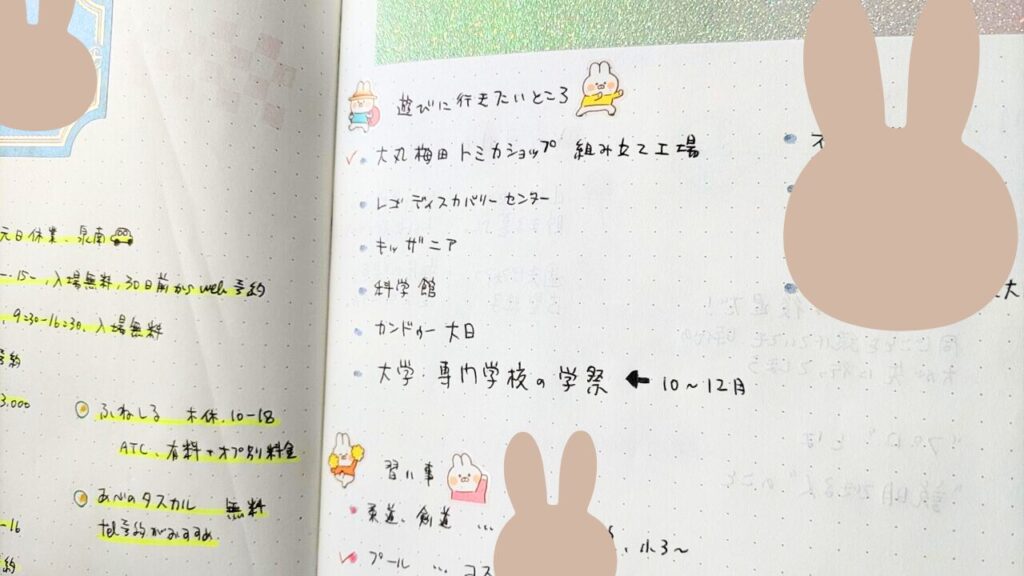 元日休業、泉南
15-,入場無料,30日前からweb予約
9:30-16:30、入場無料
予約
3.000
ふねしる 木休、10-18
ATC、有料+オプ別料金
あべのタスカル 無料
予約がおすすめ
-16
予約
遊びに行きたいところ
大丸梅田トミカショップ 組み立て工場
レゴディスカバリーセンター
キッザニア
科学館
カンドゥー 大日
大学・専門学校の学祭 ← 10~12月
習い事
柔道、剣道 … 、小3~
プール … コス